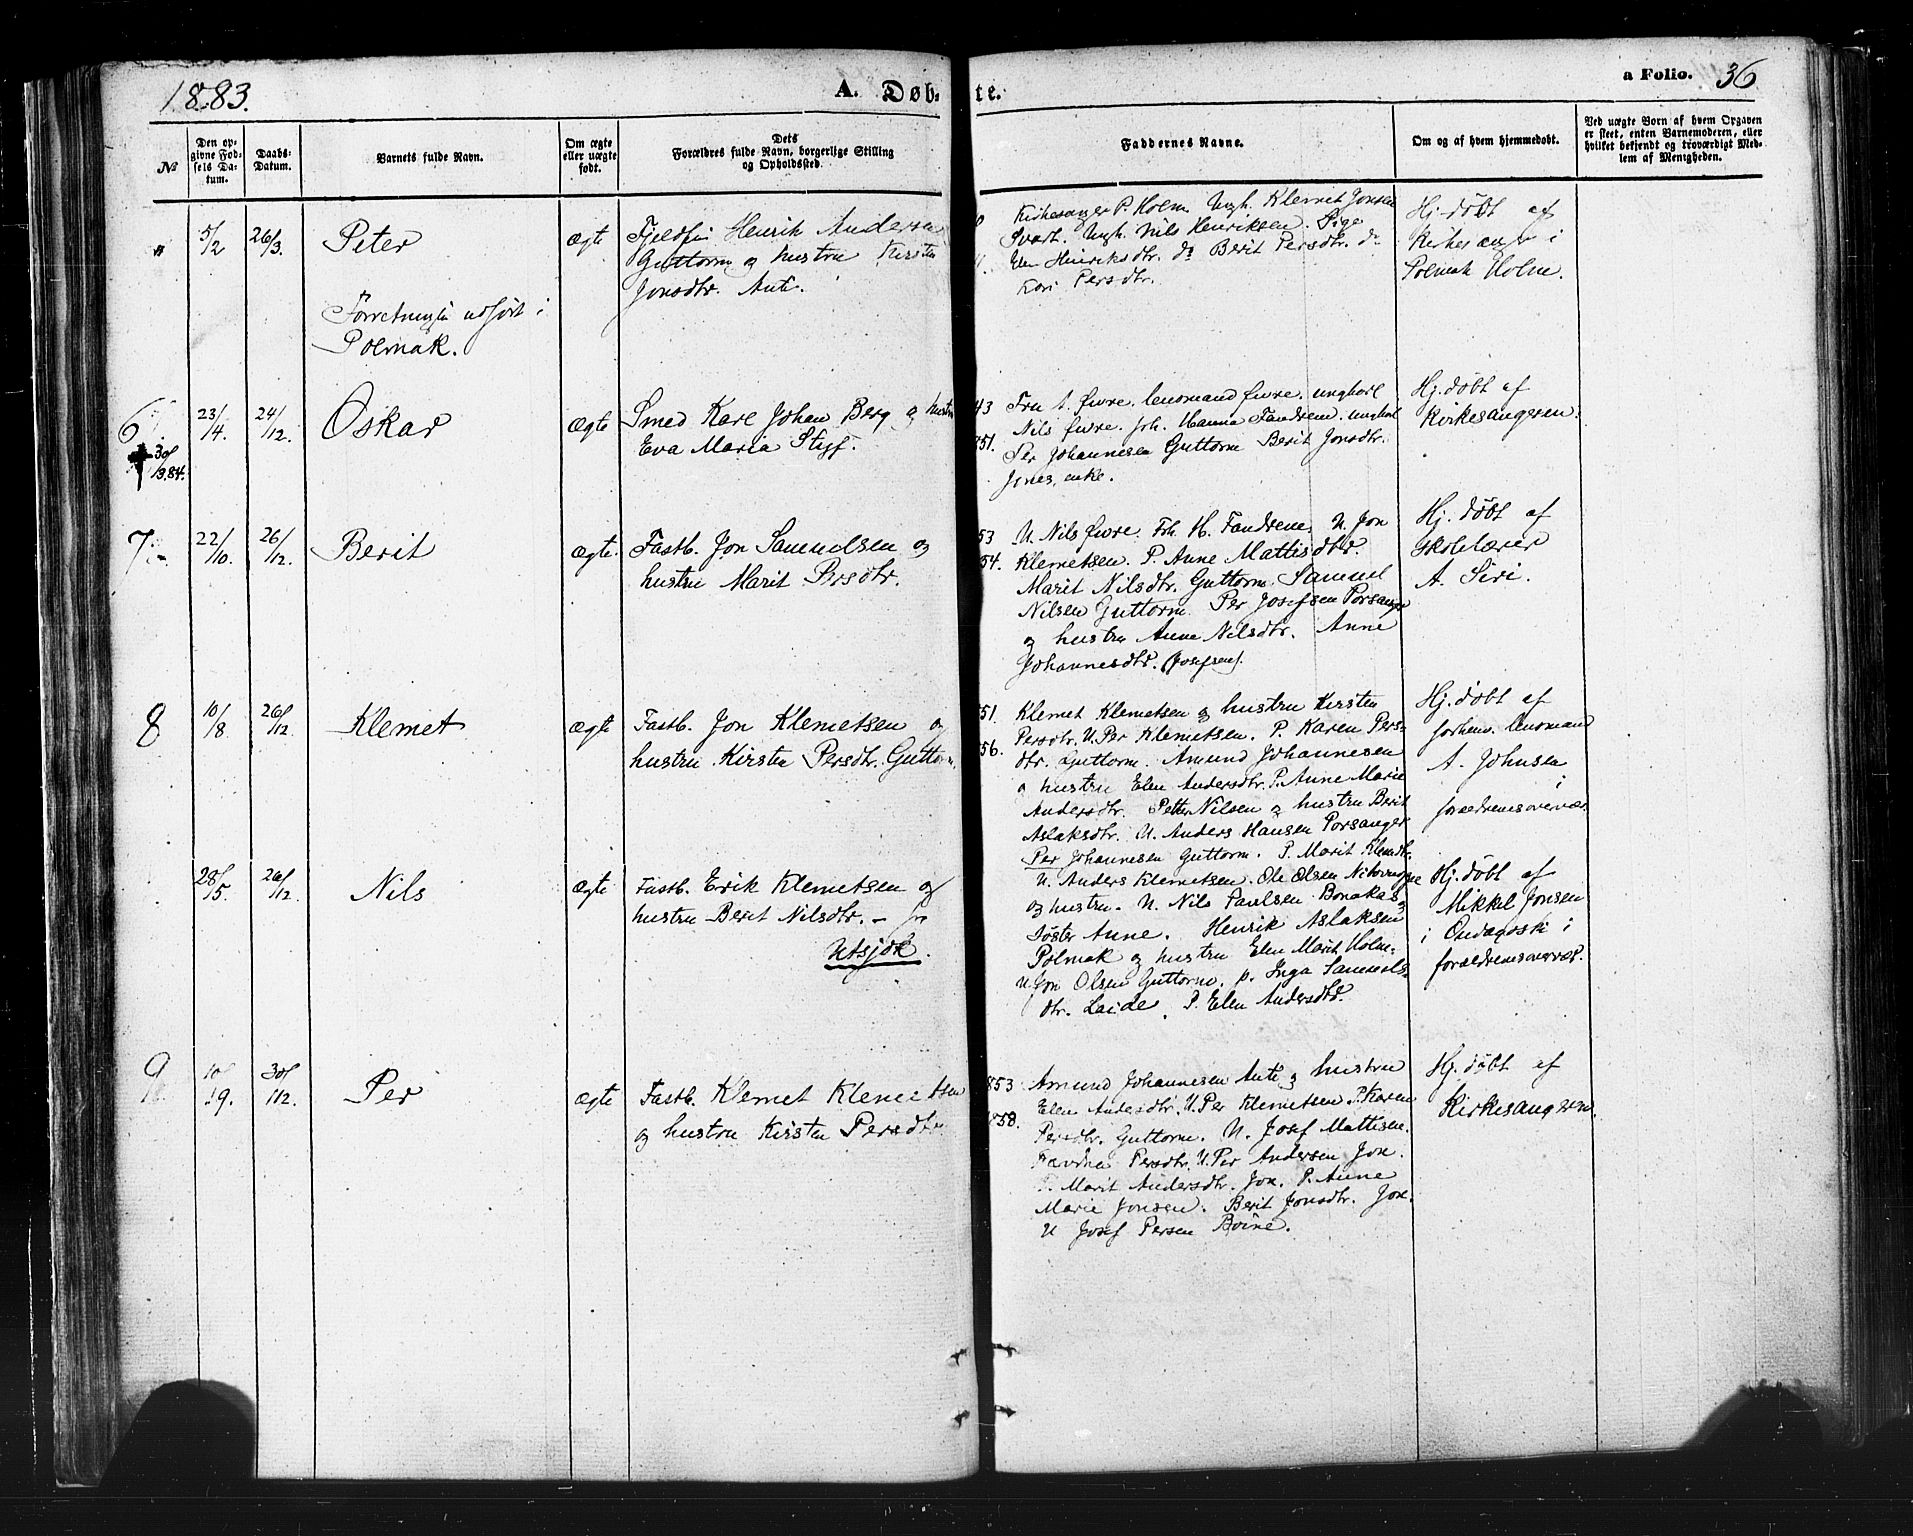 1883.
A. Døbte.
a Folio. 36
No
Den opgivne Fødsels Datum.
Daabs-Datum.
Barnets fulde Navn.
Om ægte eller uægte født.
Dets Forældres fulde Navn, borgerlige Stilling og Opholdssted.
Faddernes Navne.
Om og af hvem hjemmedøbt.
Ved uægte Born af hvem Opgaven er skeet, enten Barnemoderen, eller hvilket bekjendt og troværdigt Medlem af Menigheden.
" 5/2 26/3 Peter
Forretningen udført i
Polmak.
ægte
Fjeldfin Henrik Andersen
Guttorm og hustru Kirsten
Jonsdtr. Anti.
Kirkesanger P. Holm Ungk. Klemet Jonsen
Svart. Ungk. Nils Henriksen. Pige
Elen Henriksdtr. do Berit Persdtr. do
Kari Persdtr.
Hj. døbt af
Kirkesanger i
Polmak Holm.
6 23/4. 24/12. Oskar
30/3.84.
ægte
Smed Karl Johan Berg og hustru
Eva Maria Styf.
43
51.
Fru A. Øvre. lensmand Øvre. ungkarl
Nils Øvre. frk. Hanna Fandrem. ungkarl
Per Johannesen Guttorm Berit Jonsdtr.
Jones, enke.
Hj. døbt af
Kirkesangeren.
7. 22/10. 26/12. Berit
ægte.
Fastb. Jon Samuelsen og
hustru Marit Persdtr.
53
54.
U. Nils Øvre. Frk. H. Fandrem. U. Jon
Klemetsen. P. Anne Mattisdtr.
Marit Nilsdtr. Guttorm. Samuel
Nilsen Guttorm. Per Josefsen Porsanger
og hustru Anne Nilsdtr. Anne
Johannesdtr. (Josefsen).
Hj. døbt af
skolelærer
A. Siri.
8 10/8. 26/12 Klemet
ægte
Fastb. Jon Klemetsen og
hustru Kirsten Persdtr. Guttorm.
51.
56.
Klemet Klemetsen og hustru Kirsten
Persdtr. U. Per Klemetsen. P. Karen Pers-
dtr. Guttorm. Amund Johannesen
og hustru Elen Andersdtr. P. Anne Marie
Andersdtr. Petter Nilsen og hustru Berit
Aslaksdtr. U. Anders Hansen Porsanger
Per Johannesen Guttorm. P. Marit Klemdtr.
Hj. døbt af
forhenv. lensmand
A. Johnsen
i
forældrenes overvær.
28/5. 26/12. Nils
ægte
Fastb. Erik Klemetsen og
hustru Berit Nilsdtr. – fra
Utsjok.
U. Anders Klemetsen. Ole Olsen
og hustru. U. Nils Paulsen Bonakas og
søster Anne. Henrik Aslaksen
Polmak og hustru Elen Marit Holm.
U. Jon Olsen Guttorm. p. Inga Samuels-
dtr. Laide. P. Elen Andersdtr.
Hj. døbt af
Mikkel Jonsen
i i
forældrenes overvær.
9 10/9. 30/12. Per
ægte
Fastb. Klemet Klemetsen
og hustru Kirsten Persdtr.
853
858.
Amund Johannesen Anti og hustru
Elen Andersdtr. U. Per Klemetsen P. Karen
Persdtr. Guttorm. U. Josef Mattisen.
Persdtr. U. Per Andersen Jon.
P. Marit Andersdtr. Jon. P. Anne
Marie Jonsen. Berit Jonsdtr. Jon.
U Josef Persen Boine.
Hj. døbt af
Kirkesangeren.